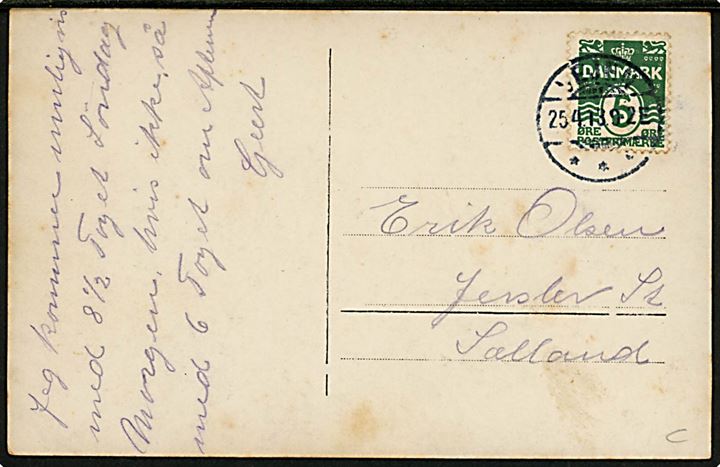 Jeg kommer muligvis
med 8½ Toget Søndag
Morgen, hvis ikke, så
med 6 Toget om Aftenen
Geert
DANMARK
5
ØRE ØRE
POSTFRIMÆRKE
25.4.13.9-12E
Erik Olsen
Jerslev St
Sælland
C